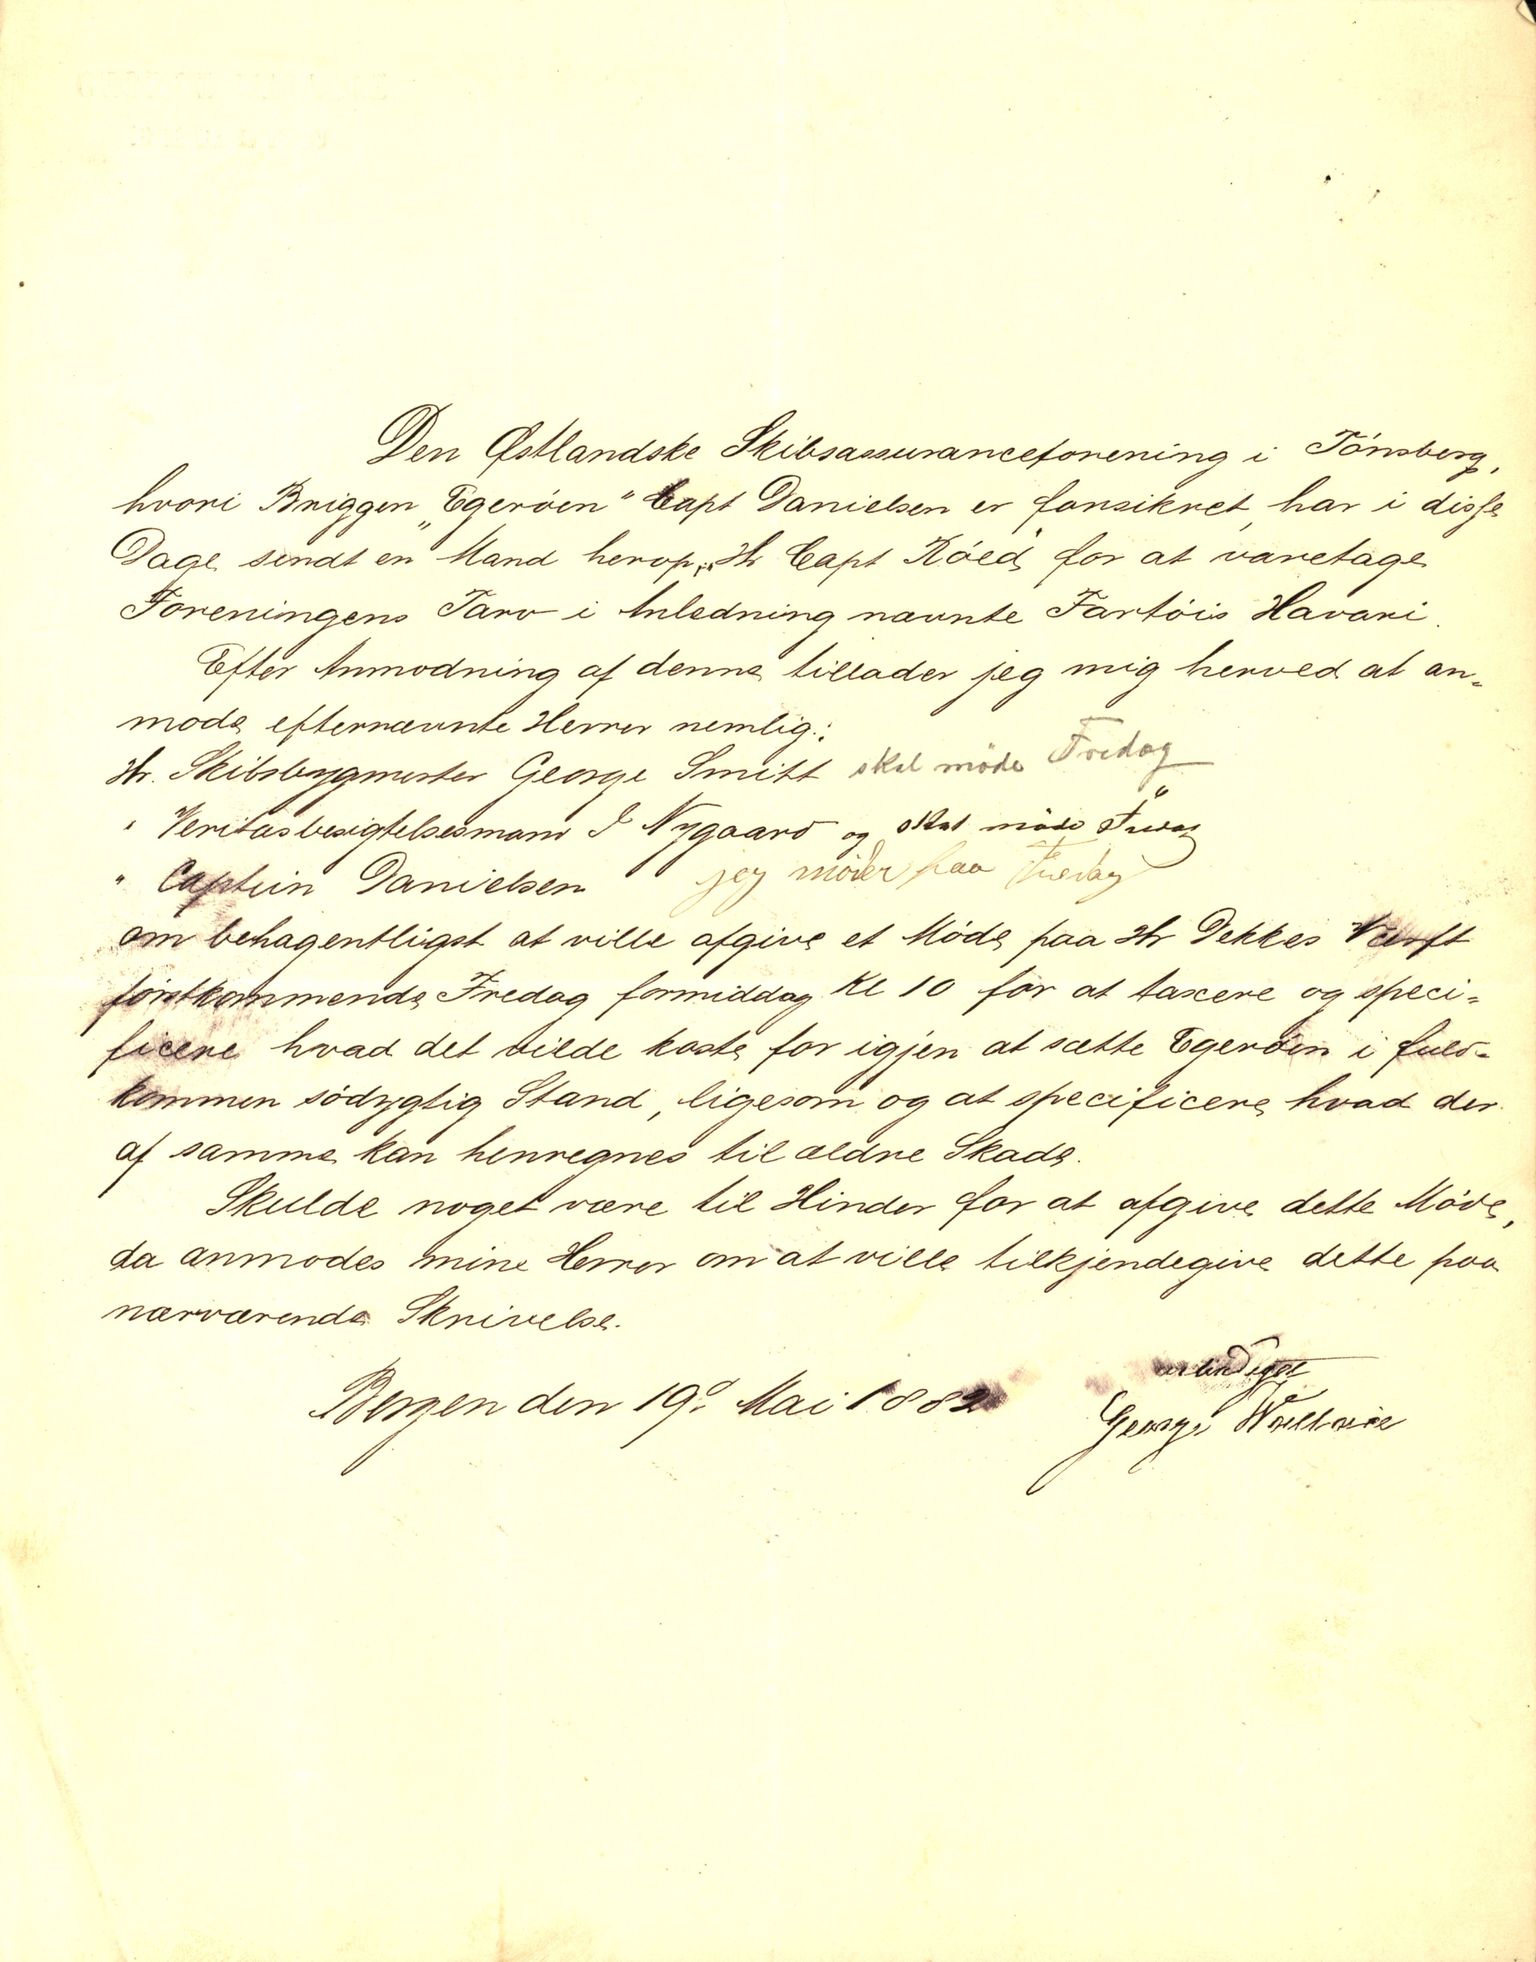 Den Østlandske Skibsassuranceforening i Tónsberg,
hvori Briggen „Egeróen" Capt Danielsen er forsikret, har i disse
Dage sendt en Mand herop, Hr Capt Róed, for at varetage
Foreningens Tarv i Anledning nævnte Fartóis Havari.
Efter Anmodning af denne tillader jeg mig herved at an-
mode efternævnte Herrer nemlig:
Hr. Skibsbygmester George Smitt skal møde Fredag
" Veritasbesigtelsesmand J Nygaard og skal møde Fredag
" Captein Danielsen jeg møder paa Fredag
om behagentligst at ville afgive et Móde paa Hr Dekkes Værft
fórstkommende Fredag formiddag Kl 10 for at taxere og speci-
ficere hvad det vilde koste for igjen at sætte Egeróen i fuld-
kommen södygtig Stand, ligesom og at specificere hvad der
af samme kan henregnes til ældre Skade.
Skulde noget være til Hinder for at afgive dette Móde,
da anmodes mine Herrer om at ville tilkjendegive dette paa
nærværende Skrivelse.
Bergen den 19d Mai 1882
ærbødigst
George Wallace